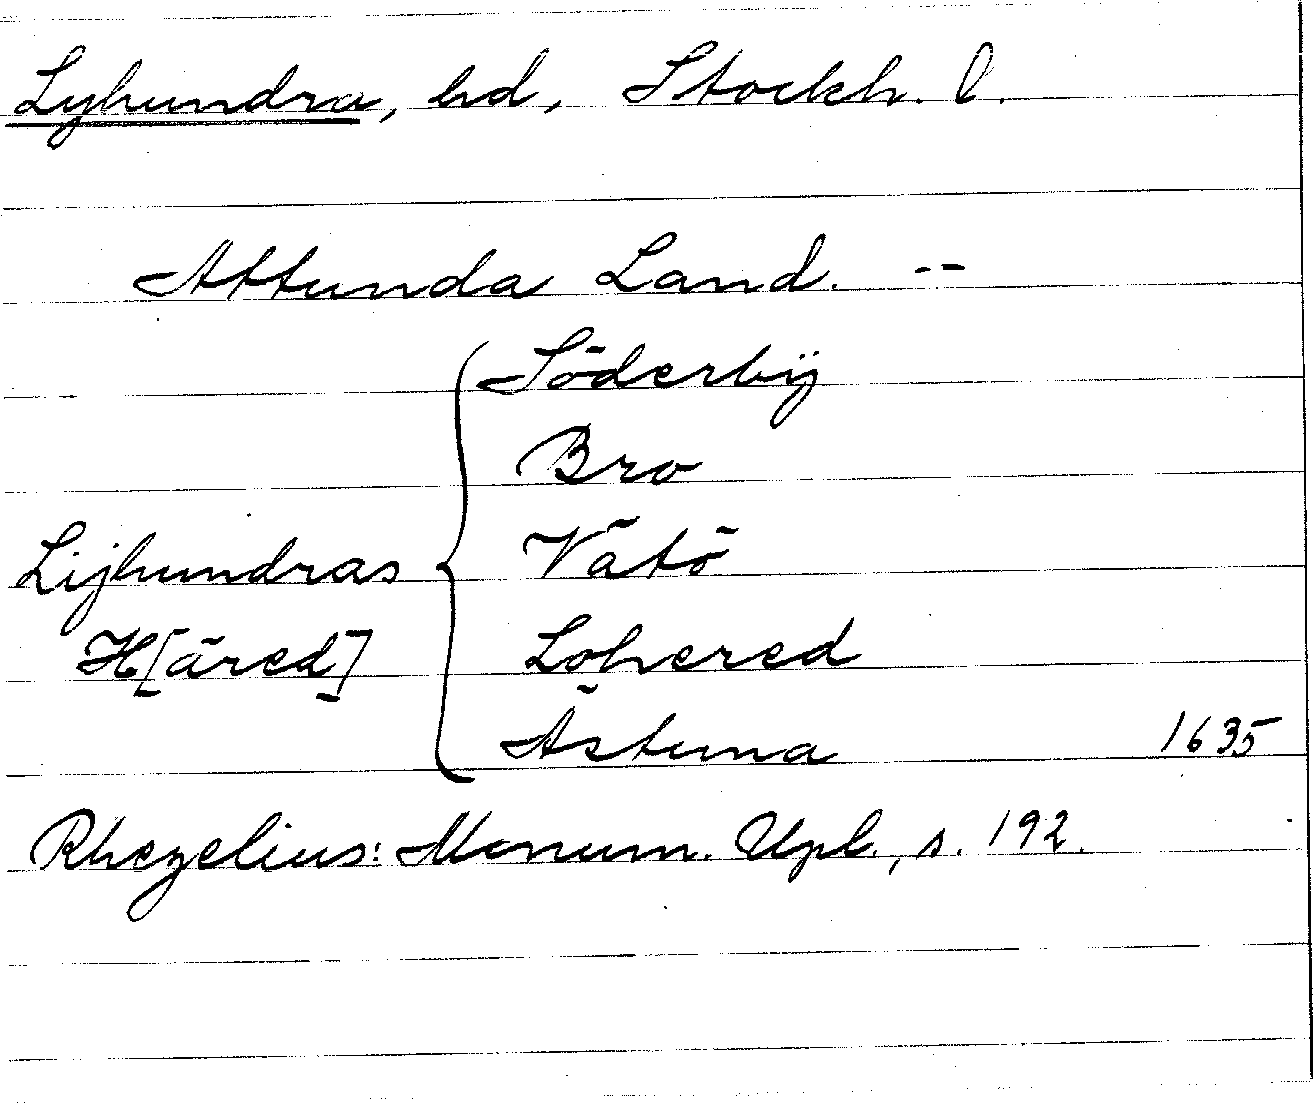 Lyhundra, hd, Stockh. l.
Attunda Land. --
Söderbÿ
Bro
Vätö
Lijhundras
H[äred]
Lohered
Ästuna
1635
Rhezelius: Monum. Upl., s. 192.